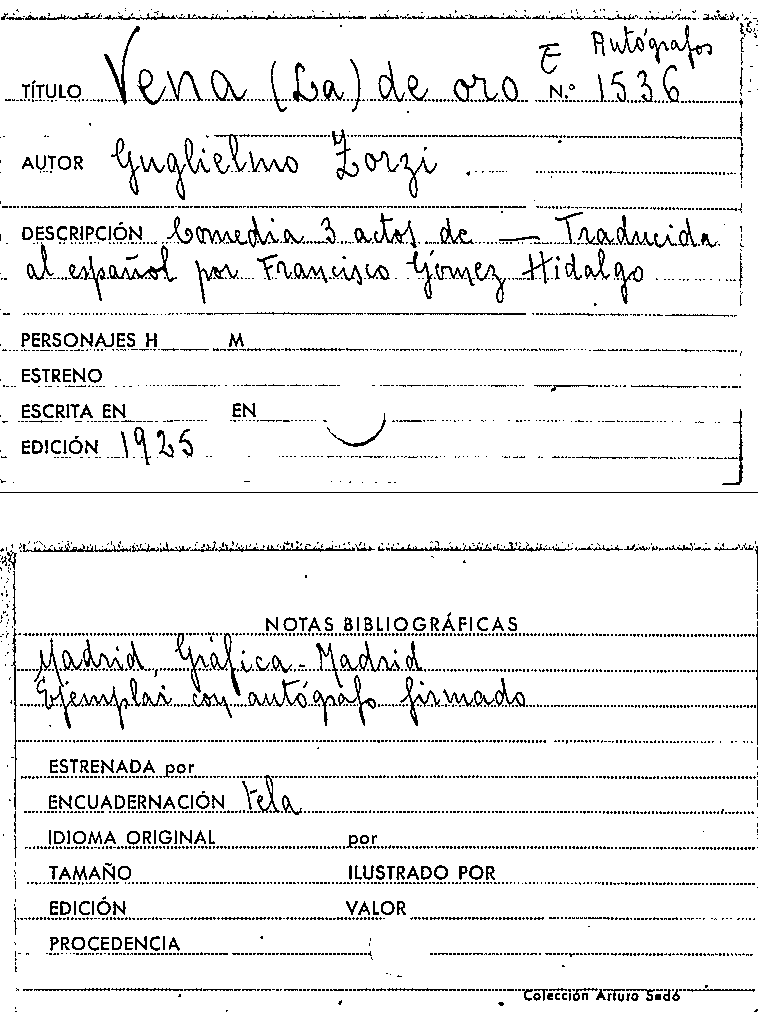 E Autógrafos
TÍTULO Vena (La) de oro N.º 1536
AUTOR Guglielmo Zorzi
DESCRIPCIÓN Comedia 3 actos de — Traducida
al español por Francisco Gómez Hidalgo
PERSONAJES H M
ESTRENO
ESCRITA EN EN
EDICIÓN 1925
NOTAS BIBLIOGRÁFICAS
Madrid, Gráfica - Madrid
Ejemplar con autógrafo firmado
ESTRENADA por
ENCUADERNACIÓN tela
IDIOMA ORIGINAL por
TAMAÑO ILUSTRADO POR
EDICIÓN VALOR
PROCEDENCIA
Colección Arturo Sedó